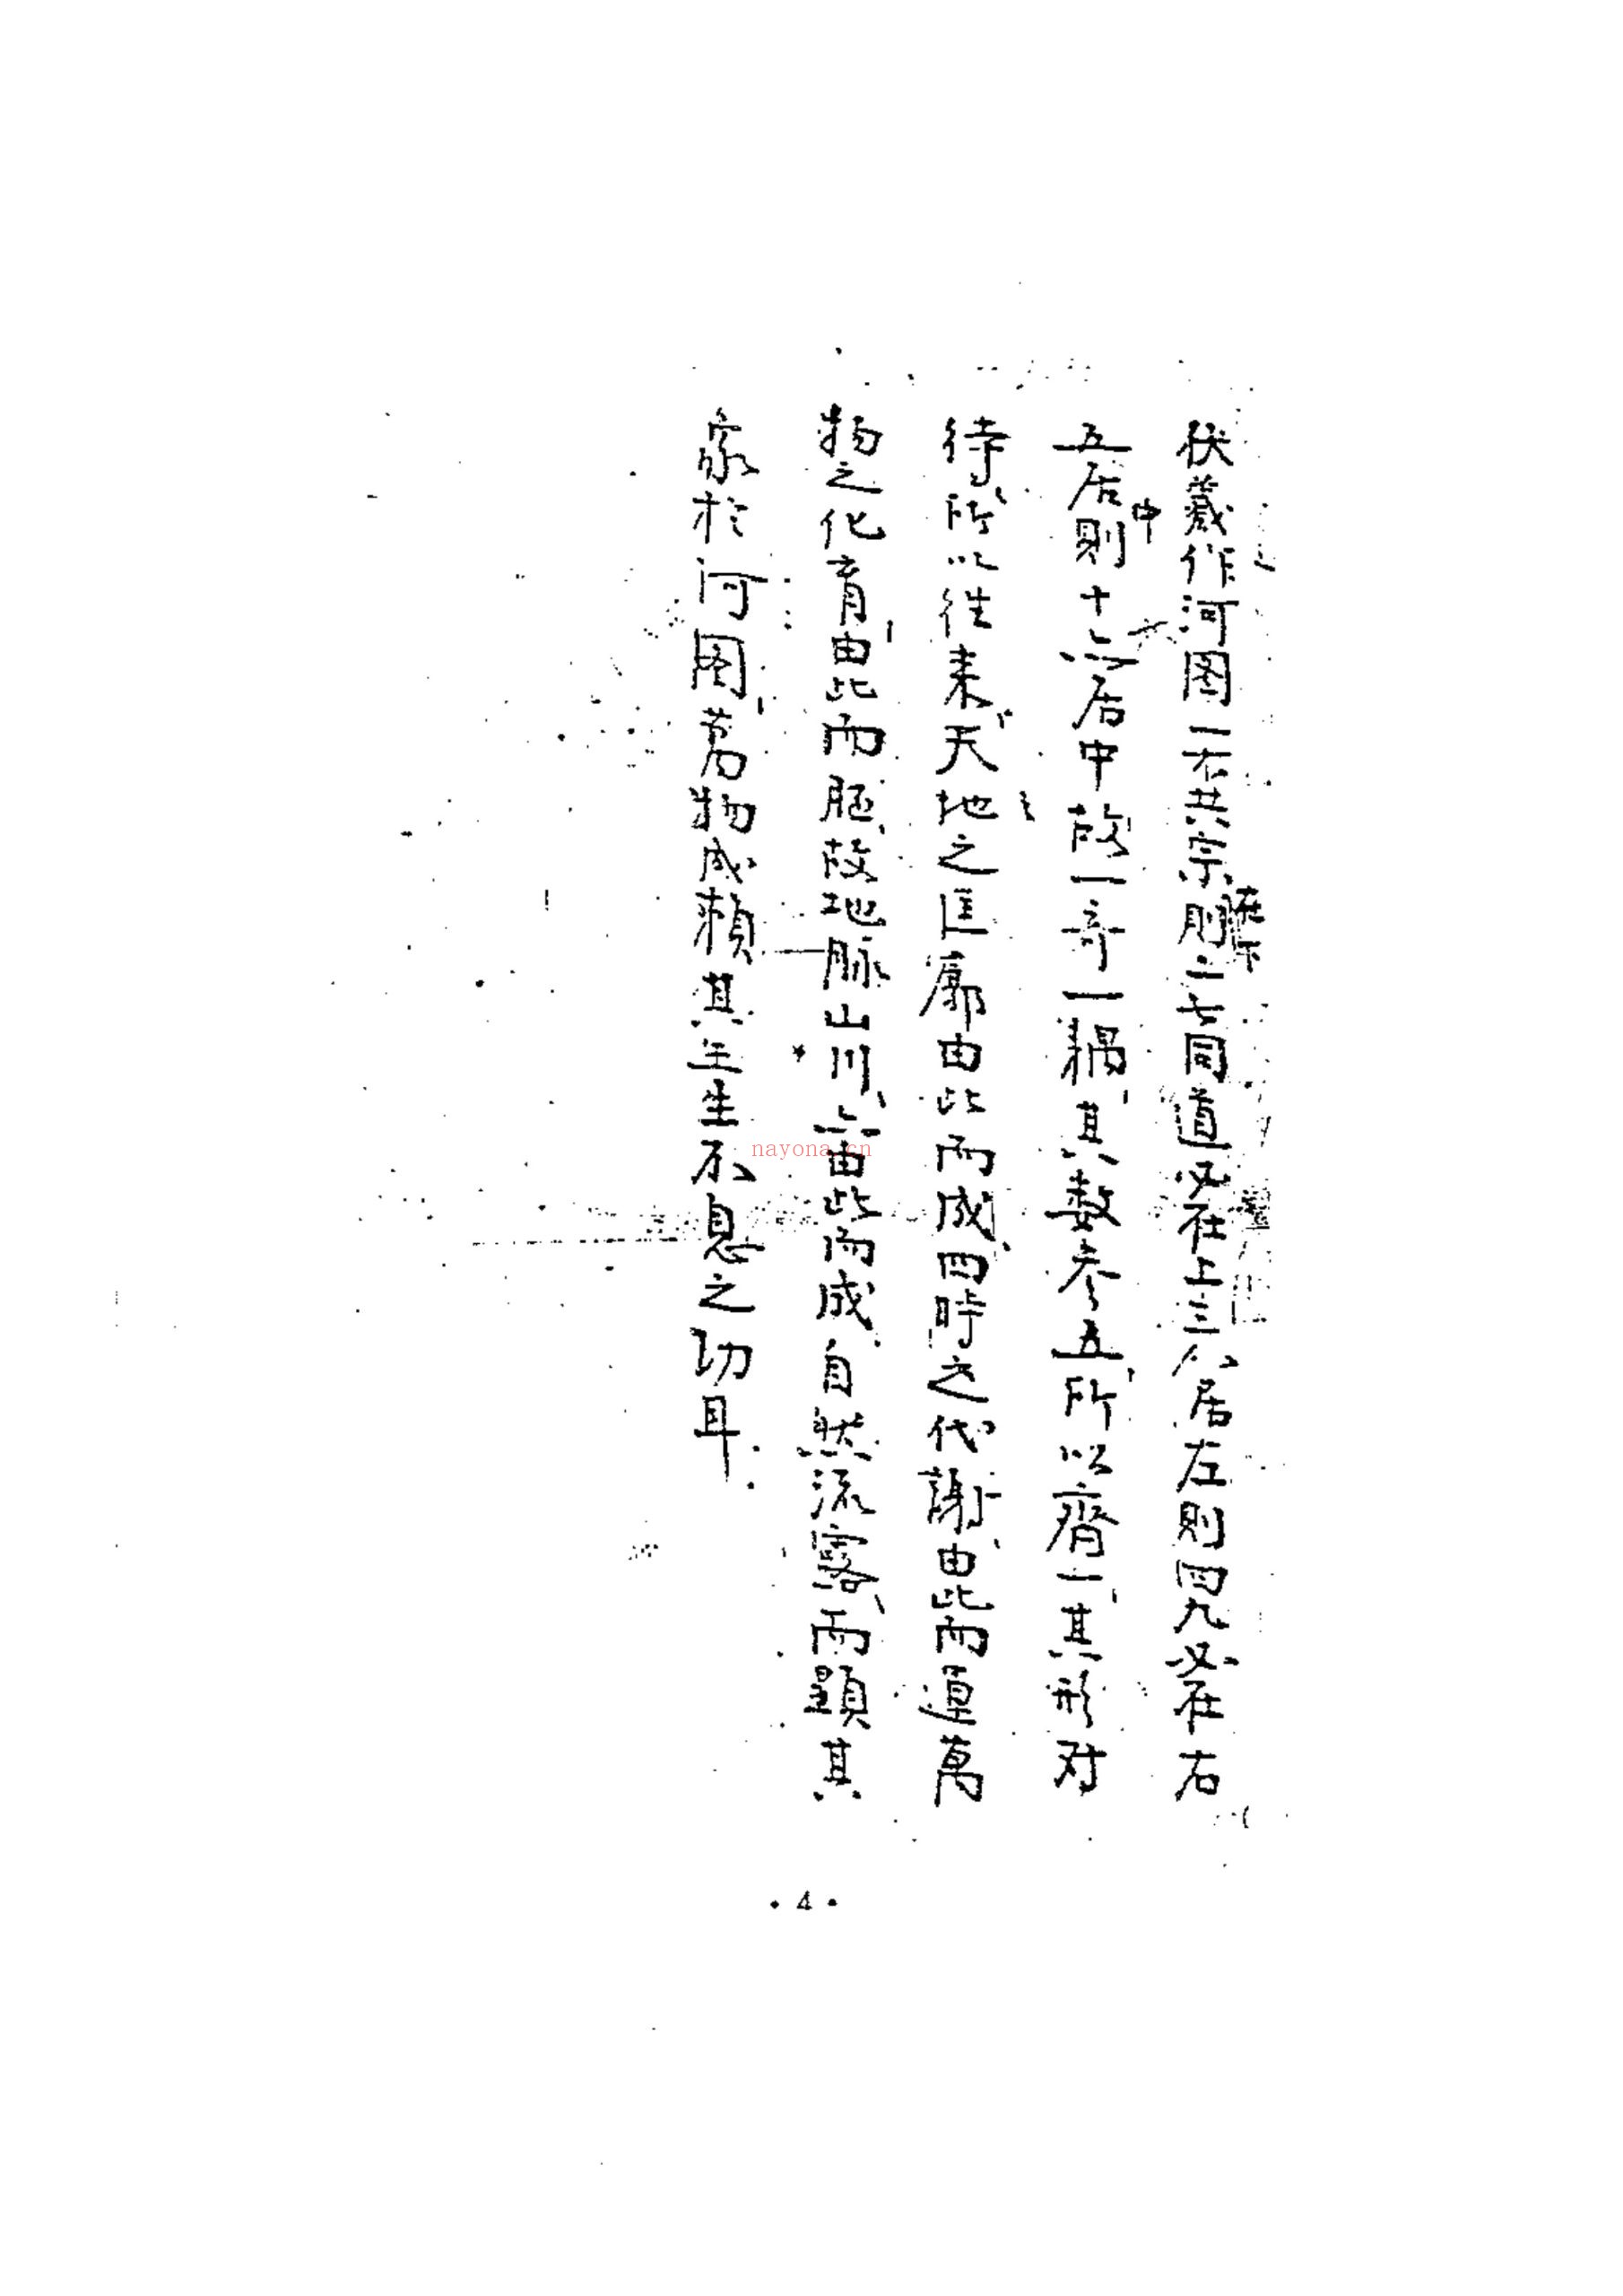 伏羲作河图一六共宗在下則二七同道必在上三八居左則四九必在右
五居中則十亦居中故一奇一耦其数参五所以齊一其形对
待所以往来天地之匡廓由此而成四時之代謝由此而運萬
物之化育由此而胚故地脉山川亦由此而成自然流露而顕其
象於河图萬物咸賴其生生不息之功耳
nayona.cn
·4·